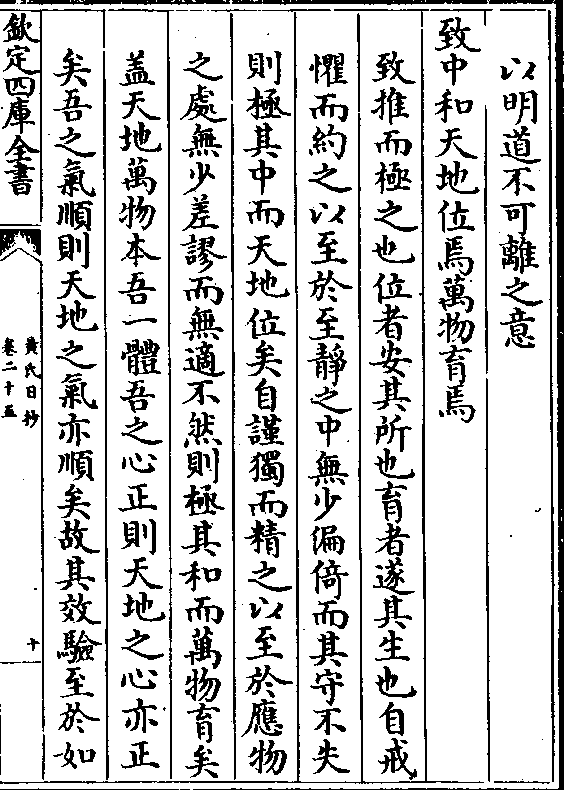 以明道不可離之意
致中和天地位焉萬物育焉
致推而極之也位者安其所也育者遂其生也自戒
懼而約之以至於至靜之中無少偏倚而其守不失
則極其中而天地位矣自謹獨而精之以至於應物
之處無少差謬而無適不然則極其和而萬物育矣
盖天地萬物本吾一體吾之心正則天地之心亦正
矣吾之氣順則天地之氣亦順矣故其效驗至於如
欽定四庫全書
黄氏日抄
卷二十五
十